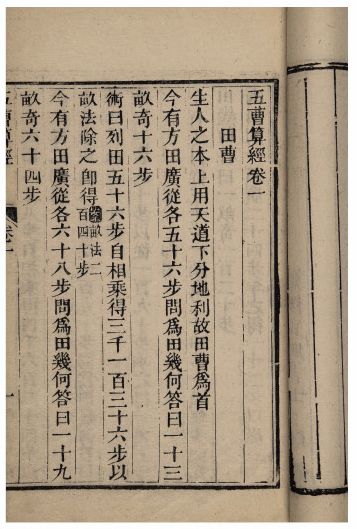 五曹算經卷一
田曹
生人之本上用天道下分地利故田曹爲首
今有方田廣從各五十六步問爲田幾何答曰一十三
畝奇十六步
術曰列田五十六步自相乘得三千一百三十六步以
畝法除之卽得案畝法二百四十步
今有方田廣從各六十八步問爲田幾何答曰一十九
畝奇六十四步
五曹算經 卷一 一